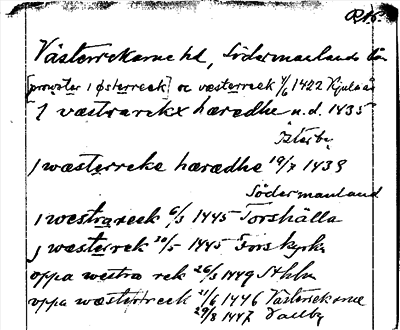 Västerrekarne hd, Södermanlands län
[prowster i østerreck] oc wæsterreek 4/6 1422 Kjula ä
J væstrarekx hæradhe u.d. 1435
Österby
j wæsterreke hæradhe 19/7 1439
Södermanland
j westrareek 6/3 1445 Torshälla
j wæsterrek 30/5 1445 Fors kyrka
oppa westra rek 26/3 1449 Sthlm
oppa wæsterreek 21/6 1446 Västerrekarne
29/8 1447 Vallby